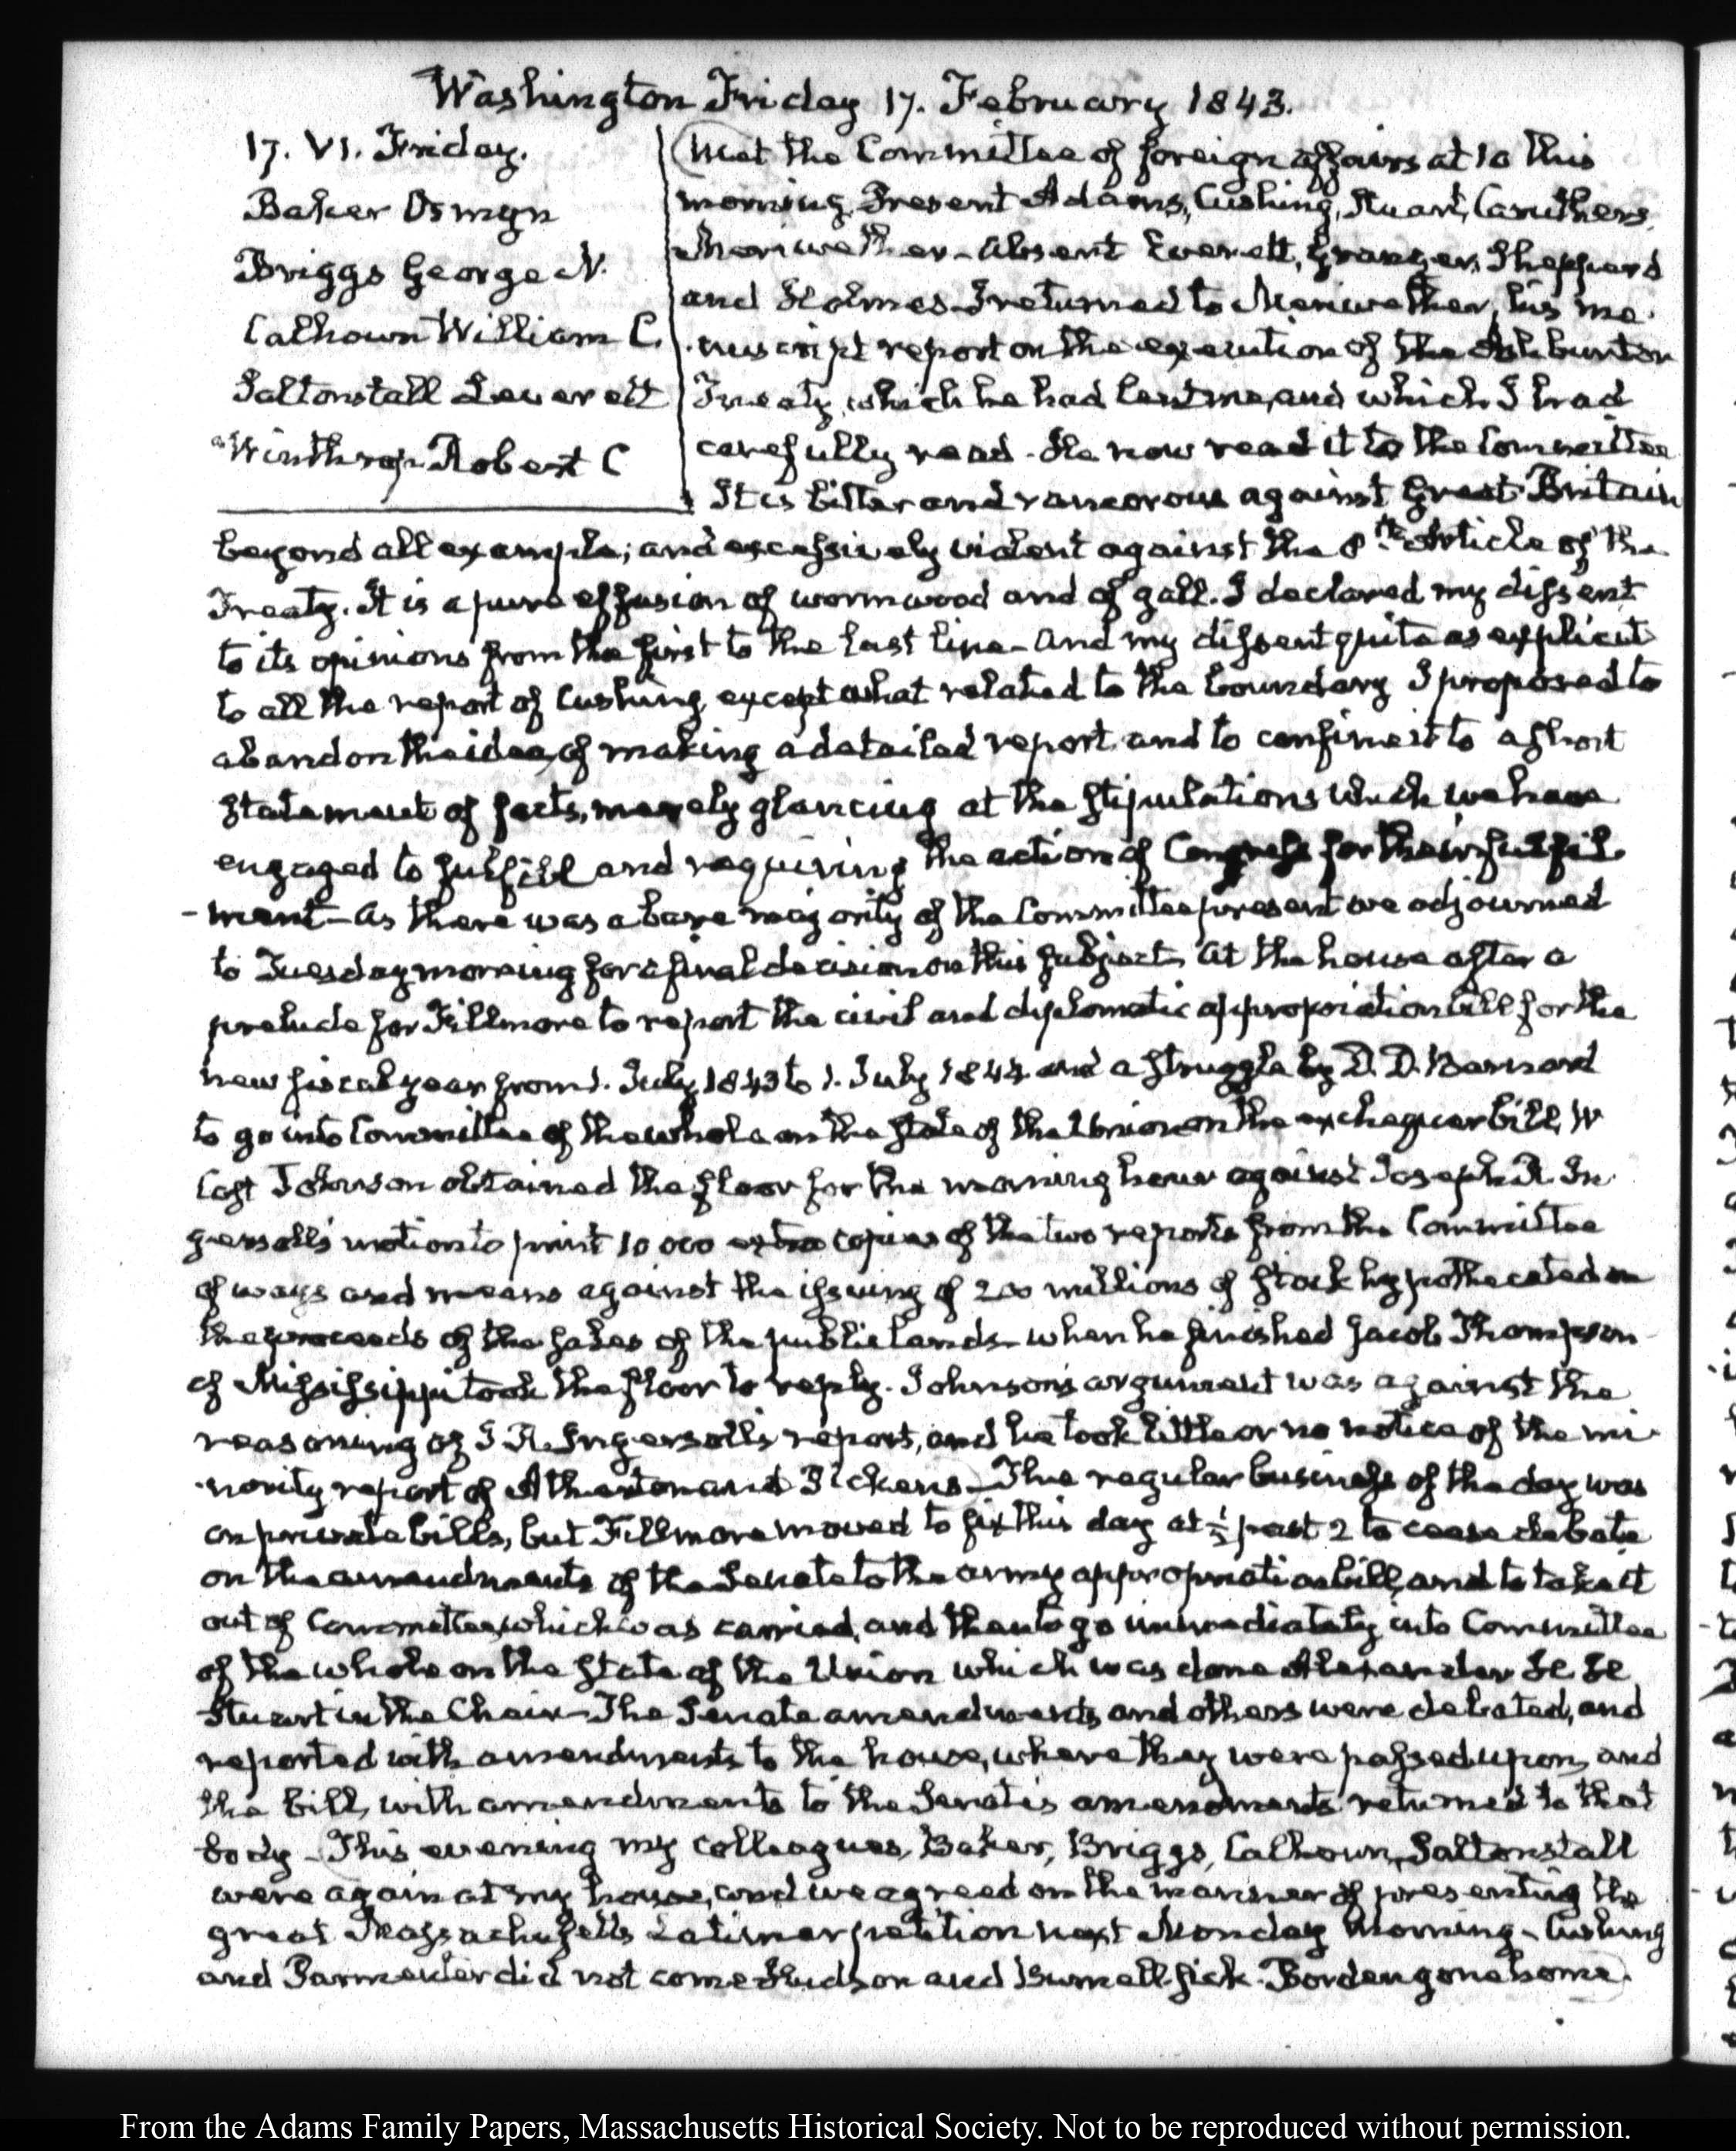 Washington Friday 17. February 1843.
17. VI. Friday.
Baker Osmyn
Briggs George N.
Calhoun William C.
Saltonstall Leverett
Winthrop Robert C
Meet the Committee of foreign affairs at 10 this
morning. Present Adams, Cushing, Stuart, Caruthers,
Meriwether – Absent Everett, Granger, Shepperd
and Holmes. I returned to Meriwether, his ma-
-nuscript report on the execution of the Ashburton
Treaty, which he had lent me, and which I had
carefully read. He now read it to the Committee
It is bitter and rancorous against Great-Britain
beyond all example; and excessively violent against the 8th. Article of the
Treaty. It is a pure effusion of wormwood and of gall. I declared my dissent
to its opinions from the first to the last line – And my dissent quite as explicit
to all the report of Cushing, except what related to the boundary I proposed to
abandon the idea, of making a detailed report, and to confine it to a short
statement of facts, merely glancing at the stipulations which we have
engaged to fulfill and requiring the action of Congress for their fulfil-
-ment – As there was a bare majority of the Committee present we adjourned
to Tuesday morning for a final decision on this subject. At the house after a
prelude for Fillmore to report the civil and diplomatic appropriation bill for the
new fiscal year from 1. July 1843 to 1. July 1844 and a struggle by D. D. Barnard
to go into Committee of the whole on the state of the Union on the exchequer bill, W
Cost Johnson obtained the floor for the morning hour against Joseph R. In-
gersoll's motion to print 10 000 extra copies of the two reports from the Committee
of ways and means against the issuing of 200 millions of stock hypothecated on
the proceeds of the sales of the public lands – when he finished Jacob Thompson
of Mississippi took the floor to reply. Johnson's argument was against the
reasoning of J R. Ingersoll's report, and he took little or no notice of the mi-
-nority report of Atherton and Pickens – The regular business of the day was
on private bills, but Fillmore moved to fix this day at ½ past 2 to cease debate
on the amendments of the Senate to the army appropriation bill, and to take it
out of Committee, which was carried, and then to go immediately into Committee
of the whole on the state of the Union which was done Alexander H H
Stuart in the Chair – The Senate amendments, and others were debated, and
reported with amendments to the house, where they were passed upon, and
the bill, with amendments to the Senate's amendments returned to that
body – This evening my colleagues, Baker, Briggs, Calhoun, Saltonstall
were again at my house, and we agreed on the manner of presenting the
great Massachusetts Latimer petition next Monday Morning – Cushing
and Parmenter did not come Hudson and Burnell sick. Borden gone home.
From the Adams Family Papers, Massachusetts Historical Society. Not to be reproduced without permission.